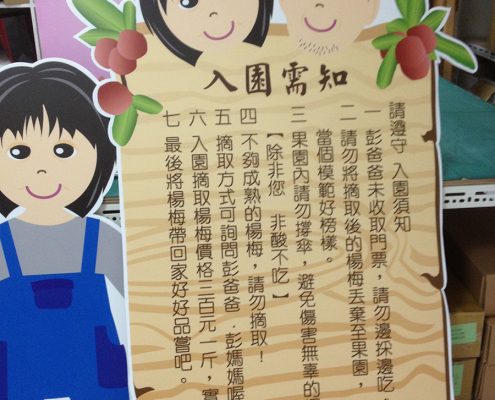 入園需知
請遵守 入園須知
一 彭爸爸未收取門票，請勿邊採邊吃。
二 請勿將摘取後的楊梅丟棄至果園，
當個模範好榜樣。
三 果園內請勿撐傘，避免傷害無辜的
【除非您 非酸不吃】
四 不夠成熟的楊梅，請勿摘取！
五 摘取方式可詢問彭爸爸．彭媽媽喔
六 入園摘取楊梅價格三百元一斤，實
七 最後將楊梅帶回家好好品嘗吧。